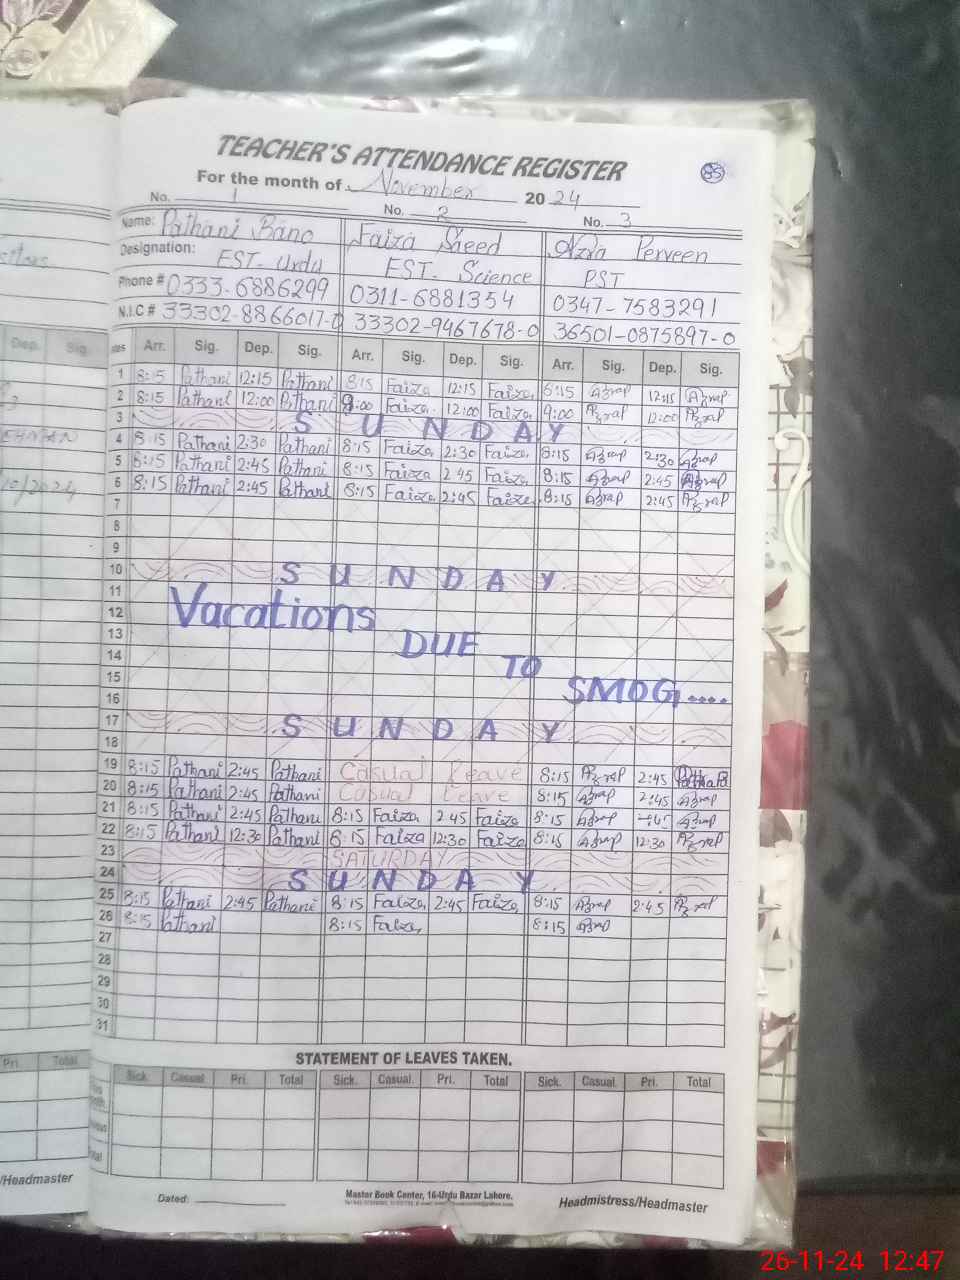 TEACHER'S ATTENDANCE REGISTER
85
For the month of November 2024
No. 1 No. 2 No. 3
Name: Pathani Bano Faiza Saeed Azra Perveen
Designation: EST-Urdu EST. Science PST
Phone # 0333-6886299 0311-6881354 0347-7583291
N.I.C # 33302-8866017-0 33302-9467678-0 36501-0875897-0
Arr. Sig. Dep. Sig. Arr. Sig. Dep. Sig. Arr. Sig. Dep. Sig.
1 8:15 Pathani 12:15 Pathani 8:15 Faiza 12:15 Faiza 8:15 12:15
2 8:15 Pathani 12:00 Pathani 9:00 Faiza 12:00 Faiza 9:00 12:00
3 SUNDAY
4 8:15 Pathani 2:30 Pathani 8:15 Faiza 2:30 Faiza 8:15 2:30
5 8:15 Pathani 2:45 Pathani 8:15 Faiza 2 45 Faiza 8:15 2:45
6 8:15 Pathani 2:45 Pathani 8:15 Faiza 2:45 Faiza 8:15 2:45
7
8
9
10 SUNDAY
11
12 Vacations
13 DUE
14 TO
15 SMOG....
16
17 SUNDAY
18
19 8:15 Pathani 2:45 Pathani Casual Leave 8:15 2:45
20 8:15 Pathani 2:45 Pathani Casual Leave 8:15 2:45
21 8:15 Pathani 2:45 Pathani 8:15 Faiza 2 45 Faiza 8:15
22 8:15 Pathani 12:30 Pathani 8:15 Faiza 12:30 Faiza 8:15 12:30
23 SATURDAY
24 SUNDAY
25 8:15 Pathani 2:45 Pathani 8:15 Faiza 2:45 Faiza 8:15 2:45
26 8:15 Pathani 8:15 Faiza 8:15
27
28
29
30
31
STATEMENT OF LEAVES TAKEN.
Sick. Casual. Pri. Total Sick. Casual. Pri. Total Sick. Casual. Pri. Total
Dated:
Master Book Center, 16-Urdu Bazar Lahore.
Headmistress/Headmaster
Dep. Sig.
Pri. Total
/Headmaster
26-11-24 12:47